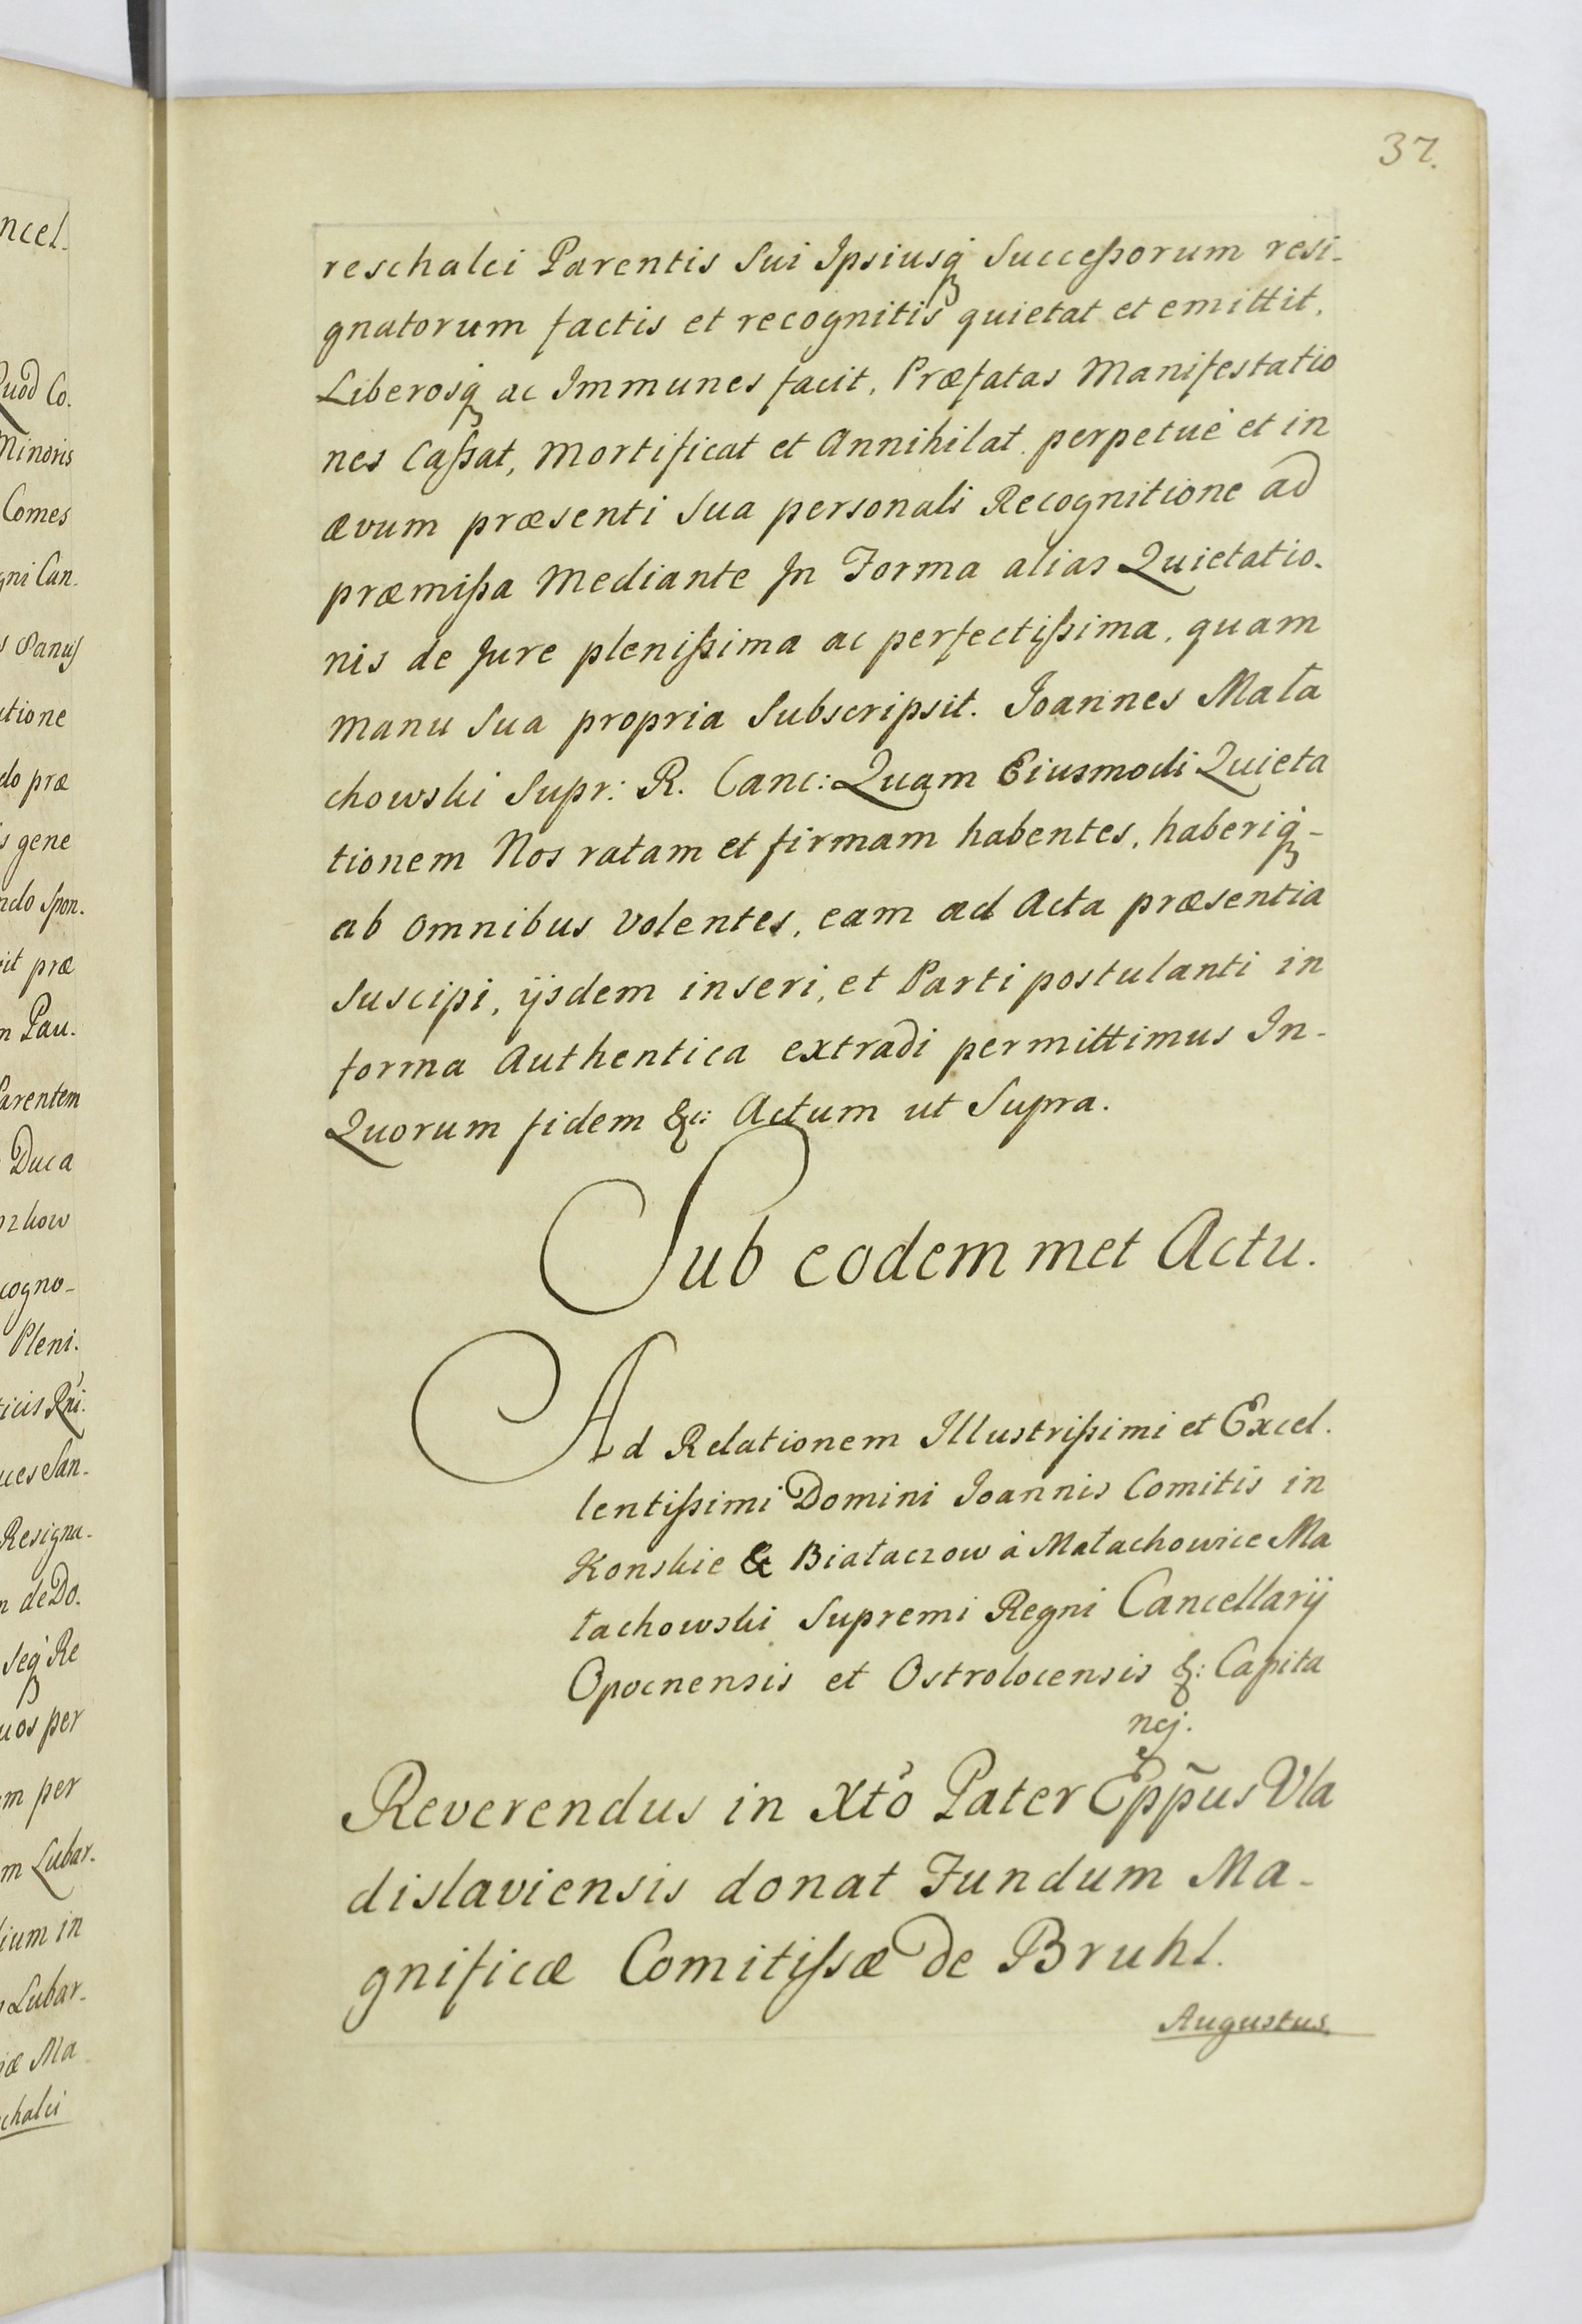 ncel.
Quod Co.
Minoris
Comes
gni Can.
s Panus
utione
do præ
s gene
ndo spon.
rit præ
m Pau.
Parentem
Duca
orzkow
cogno-
Pleni.
ticis Rni.
uces San.
Resigna-
n de Do.
seq Re
uos per
m per
m Lubar.
lium in
Lubar-
iæ Ma
chalci
37.
reschalci Parentis Sui Ipsiusq́ Successorum resi-
gnatorum factis et recognitis quietat et emittit,
Liberosq́ ac Immunes facit, Præfatas Manifestatio
nes Cassat, Mortificat et Annihilat perpetuè et in
ævum præsenti Sua personali Recognitione ad
præmissa Mediante In Forma alias Quietatio.
nis de Jure plenissima ac perfectissima, quam
manu Sua propria Subscripsit. Joannes Mała
chowski Supr: R. Canc: Quam Eiusmodi Quieta
tionem Nos ratam et firmam habentes, haberiq́-
ab omnibus volentes, eam ad Acta præsentia
suscipi, ijsdem inseri, et Parti postulanti in
forma Authentica extradi permittimus In-
Quorum fidem &c: Actum ut Supra.
Sub eodem met Actu.
Ad Relationem Illustrissimi et Excel.
lentissimi Domini Joannis Comitis in
Konskie & Białaczow à Małachowice Ma
łachowski Supremi Regni Cancellarij
Opocnensis et Ostrolocensis &: Capita
nej.
Reverendus in Xtõ Pater Epp̃us Vla
dislaviensis donat Fundum Ma-
gnificæ Comitissæ de Bruhl.
Augustus